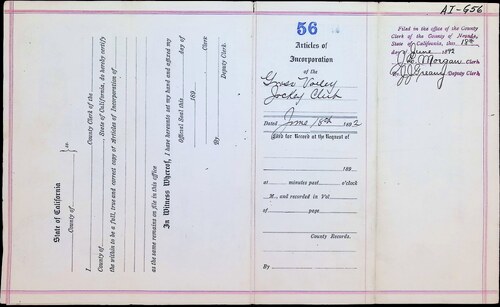 AI-G56
State of California
County of } ss
I County Clerk of the
County of , State of California, do hereby certify
the within to be a full, true and correct copy of Articles of Incorporation of
as the same remains on file in this office
In Witness Whereof, I have hereunto set my hand and affixed my
Official Seal this day of
189
Clerk
By Deputy Clerk.
56
Articles of
Incorporation
of the
Grass Valley
Jockey Club
Dated June 18th 1892
Filed for Record at the Request of
189
at minutes past o'clock
M., and recorded in Vol
of page
County Records.
By
Filed in the office of the County
Clerk of the County of Nevada,
State of California, this 18th
day of June 1892
Morgan Clerk
Deputy Clerk